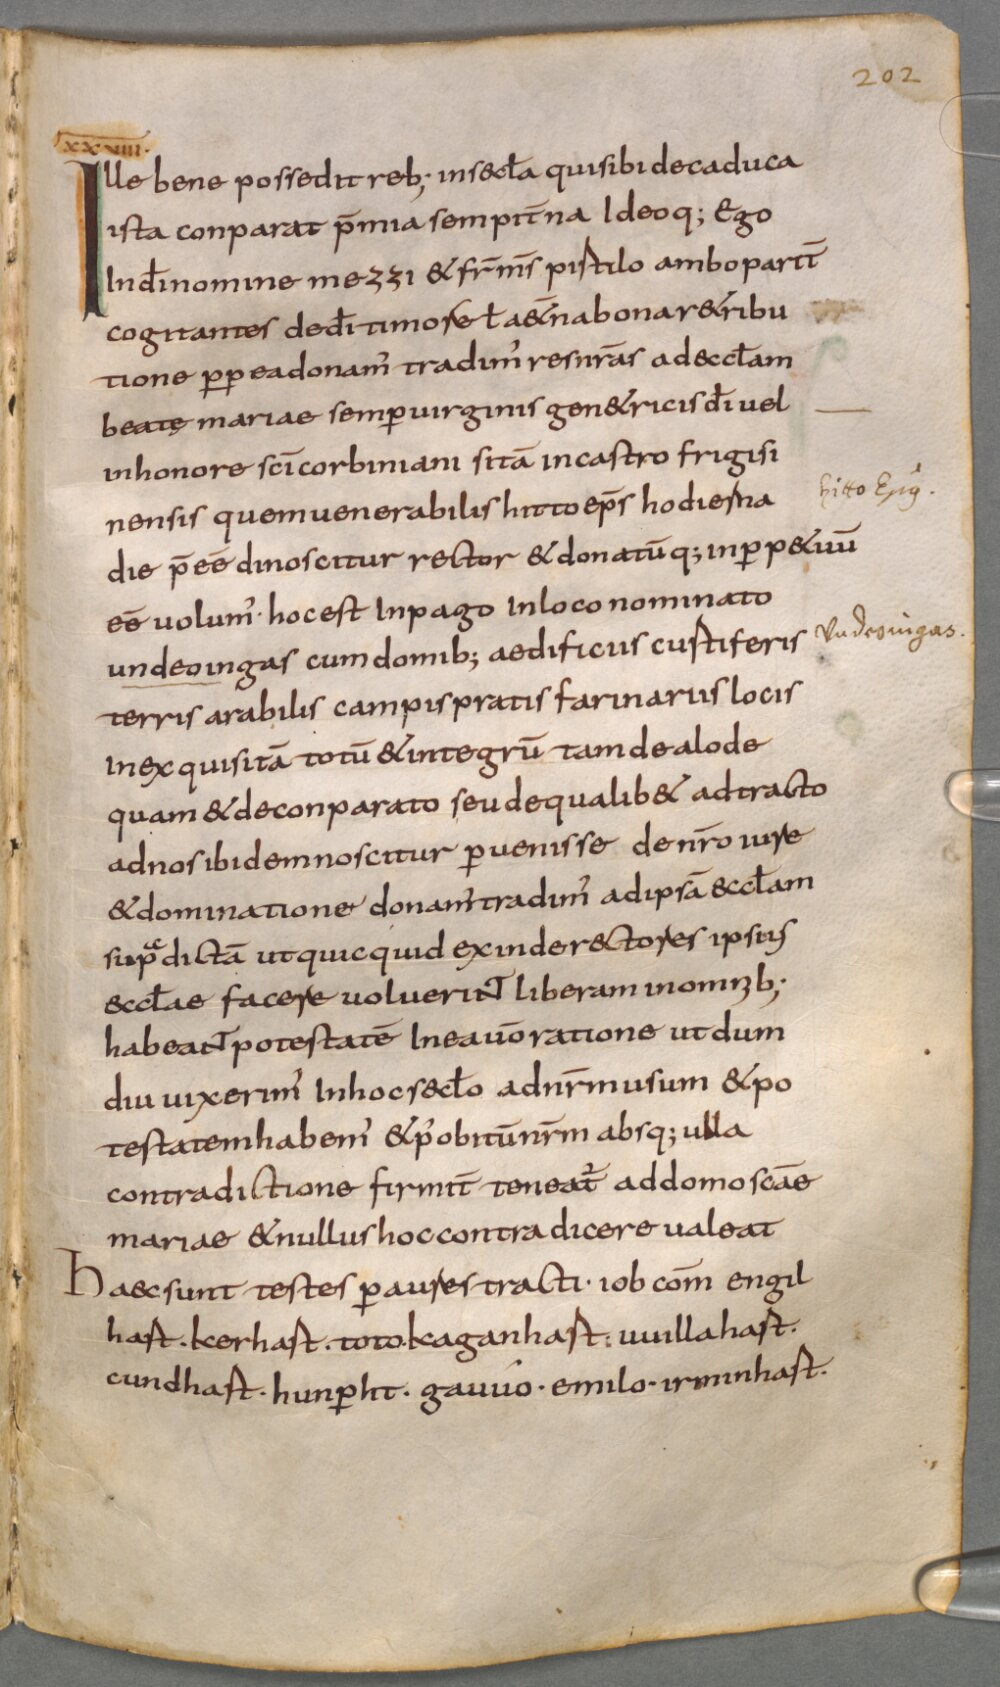 202
xxviiii.
Ille bene possedit reb; in sećla qui sibi de caduca
ista conparat p̄mia sempit̄na Ideoq; Ego
In dī nomine mezzi & fr̄ m̄s pistilo ambo parit̄
cogitantes de dī timore ł a&̄na bona r&ribu
tione ꝑpea donam᾽ tradim᾽ res nr̄as ad eccłam
beatę mariae semꝑ uirginis gen&ricis dī uel
in honore scī corbiniani sitā in castro frigisi
nensis quem uenerabilis hitto ep̄s hodierna
hitto Epis.
die p̄eē dinoscitur rector & donatūq; in ꝑp&uū
eē uolum᾽ · hoc est In pago In loco nominato
undeoingas cum domib; aedificiis custiferis
Vndeoingas.
terris arabilis campis pratis farinariis locis
Inexquisitā totū & integrū tam de alode
quam & de conparato seu de qualib& adtracto
ad nos ibidem noscitur ꝑuenisse de nr̄o iure
& dominatione donam᾽ tradim᾽ ad ipsā eccłam
sup̄dictā ut quicquid exinde rectores ipsius
eccłae facere uoluerint liberam in omnib;
habeant potestatē In ea uō ratione ut dum
diu uixerim᾽ In hoc secło ad nr̄m usum & po
testatem habem᾽ & p᾽ obitū nr̄m absq; ulla
contradictione firmit̄ teneat᾽ ad domo scāe
mariae & nullus hoc contradicere ualeat
Haec sunt testes ꝑ aures tracti · iob com̄ engil
hast · kerhast · toto · kaganhast · uuillahast ·
cundhast · hunꝑht · gauuo · emilo · irminhast ·